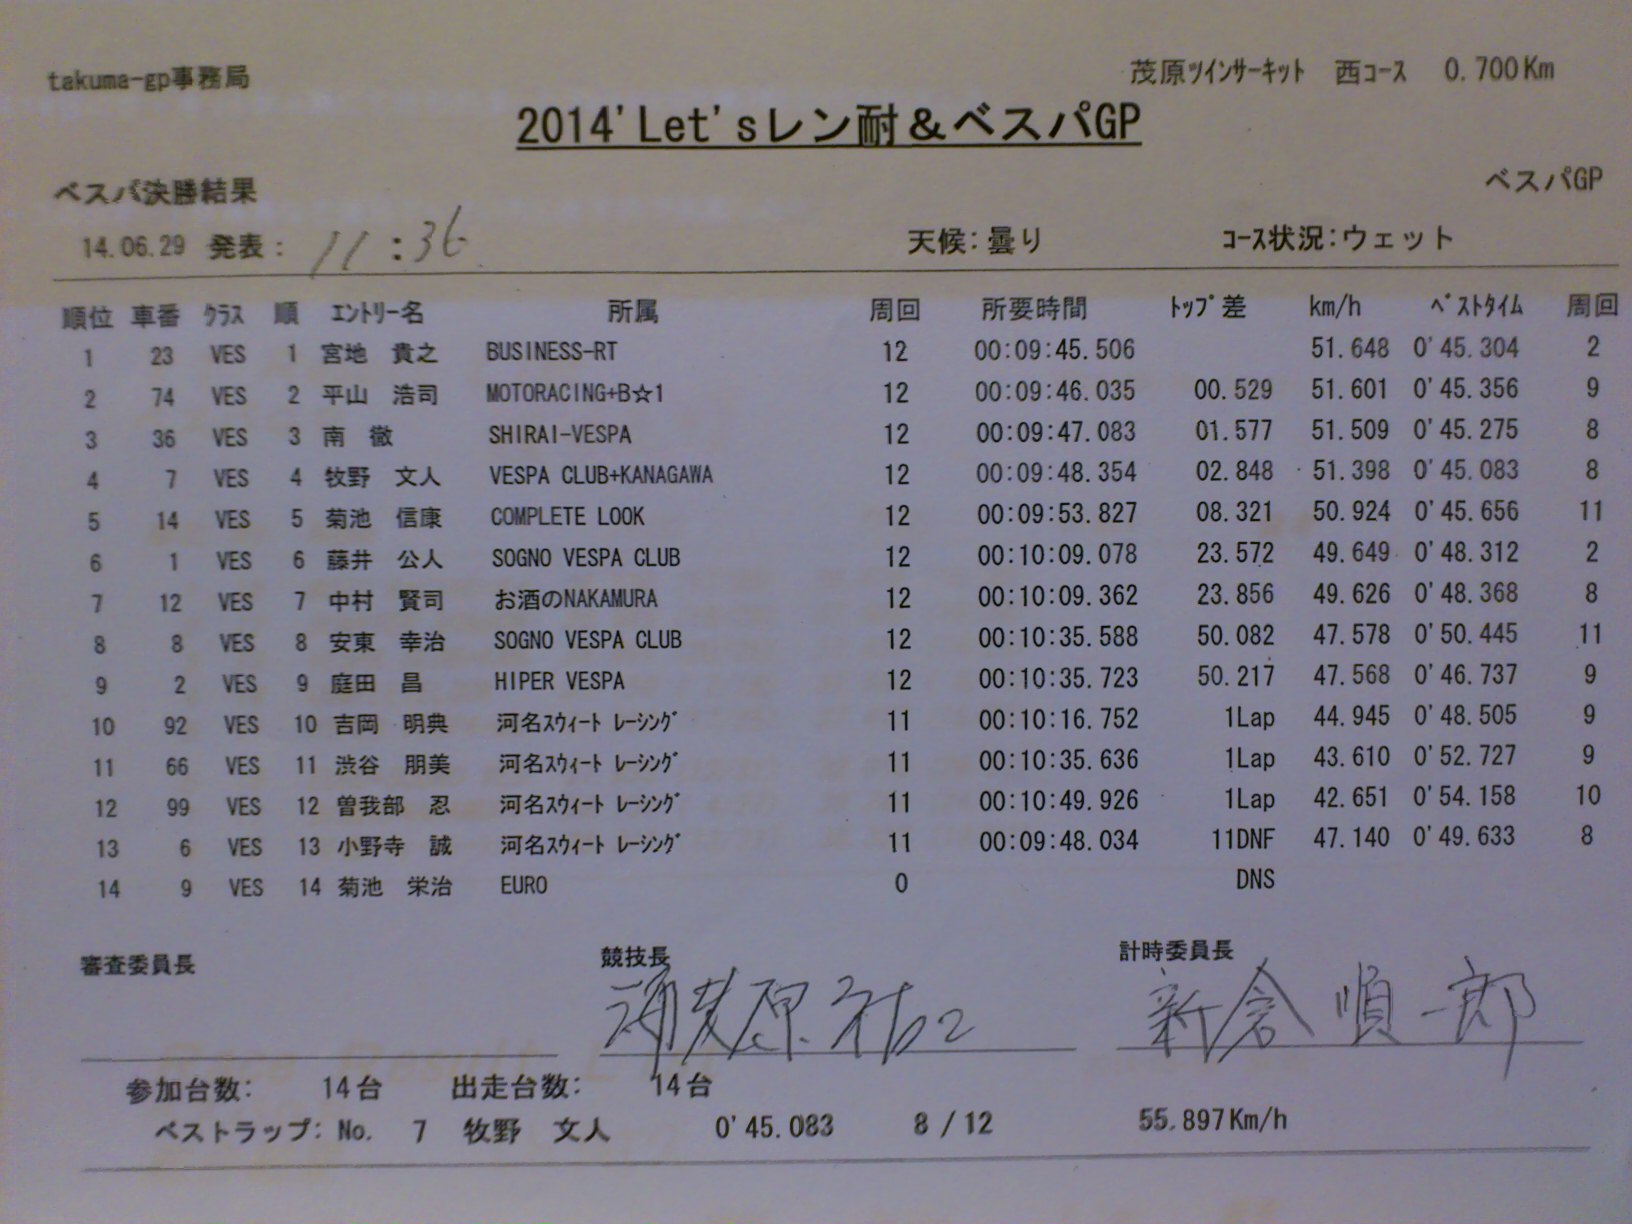 takuma-gp事務局 茂原ツインサーキット 西コース 0.700Km
2014'Let'sレン耐&ベスパGP
ベスパ決勝結果 ベスパGP
14.06.29 発表: 11:36 天候:曇り コース状況:ウェット
順位 車番 クラス 順 エントリー名 所属 周回 所要時間 トップ差 km/h ベストタイム 周回
1 23 VES 1 宮地 貴之 BUSINESS-RT 12 00:09:45.506 51.648 0'45.304 2
2 74 VES 2 平山 浩司 MOTORACING+B☆1 12 00:09:46.035 00.529 51.601 0'45.356 9
3 36 VES 3 南 徹 SHIRAI-VESPA 12 00:09:47.083 01.577 51.509 0'45.275 8
4 7 VES 4 牧野 文人 VESPA CLUB+KANAGAWA 12 00:09:48.354 02.848 51.398 0'45.083 8
5 14 VES 5 菊池 信康 COMPLETE LOOK 12 00:09:53.827 08.321 50.924 0'45.656 11
6 1 VES 6 藤井 公人 SOGNO VESPA CLUB 12 00:10:09.078 23.572 49.649 0'48.312 2
7 12 VES 7 中村 賢司 お酒のNAKAMURA 12 00:10:09.362 23.856 49.626 0'48.368 8
8 8 VES 8 安東 幸治 SOGNO VESPA CLUB 12 00:10:35.588 50.082 47.578 0'50.445 11
9 2 VES 9 庭田 昌 HIPER VESPA 12 00:10:35.723 50.217 47.568 0'46.737 9
10 92 VES 10 吉岡 明典 河名スウィート レーシング 11 00:10:16.752 1Lap 44.945 0'48.505 9
11 66 VES 11 渋谷 朋美 河名スウィート レーシング 11 00:10:35.636 1Lap 43.610 0'52.727 9
12 99 VES 12 曽我部 忍 河名スウィート レーシング 11 00:10:49.926 1Lap 42.651 0'54.158 10
13 6 VES 13 小野寺 誠 河名スウィート レーシング 11 00:09:48.034 11DNF 47.140 0'49.633 8
14 9 VES 14 菊池 栄治 EURO 0 DNS
審査委員長 競技長 計時委員長
新倉 順一郎
参加台数: 14台 出走台数: 14台
ベストラップ: No. 7 牧野 文人 0'45.083 8 / 12 55.897Km/h